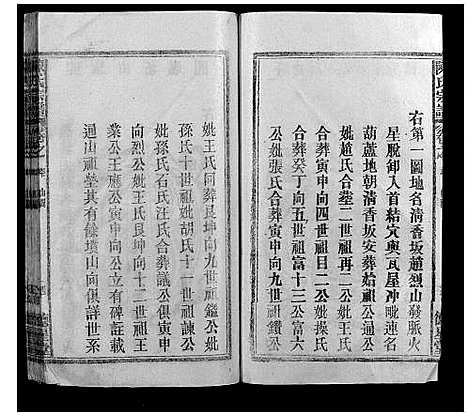 陳氏宗譜
右第一圖地名清香坂趙烈山發脈火
星脫卸入首結寅輿瓦屋冲毗連名
葫蘆地朝清香坂安葬始祖公通公
妣趙氏合塟二世祖再二公妣王氏
合葬寅申向四世祖日二公妣操氏
合葬癸丁向五世祖富十三公富六
公妣張氏合葬寅申向九世祖
妣王氏同葬艮坤向九世祖鑑公妣
孫氏十世祖妣胡氏十一世祖諫公
妣孫氏石氏汪氏合葬議公寅申
向烈公妣王氏艮坤向十二世祖王
業公王應公寅申向公立有碑証載
週山祖塋其有餘墳山向俱詳世系